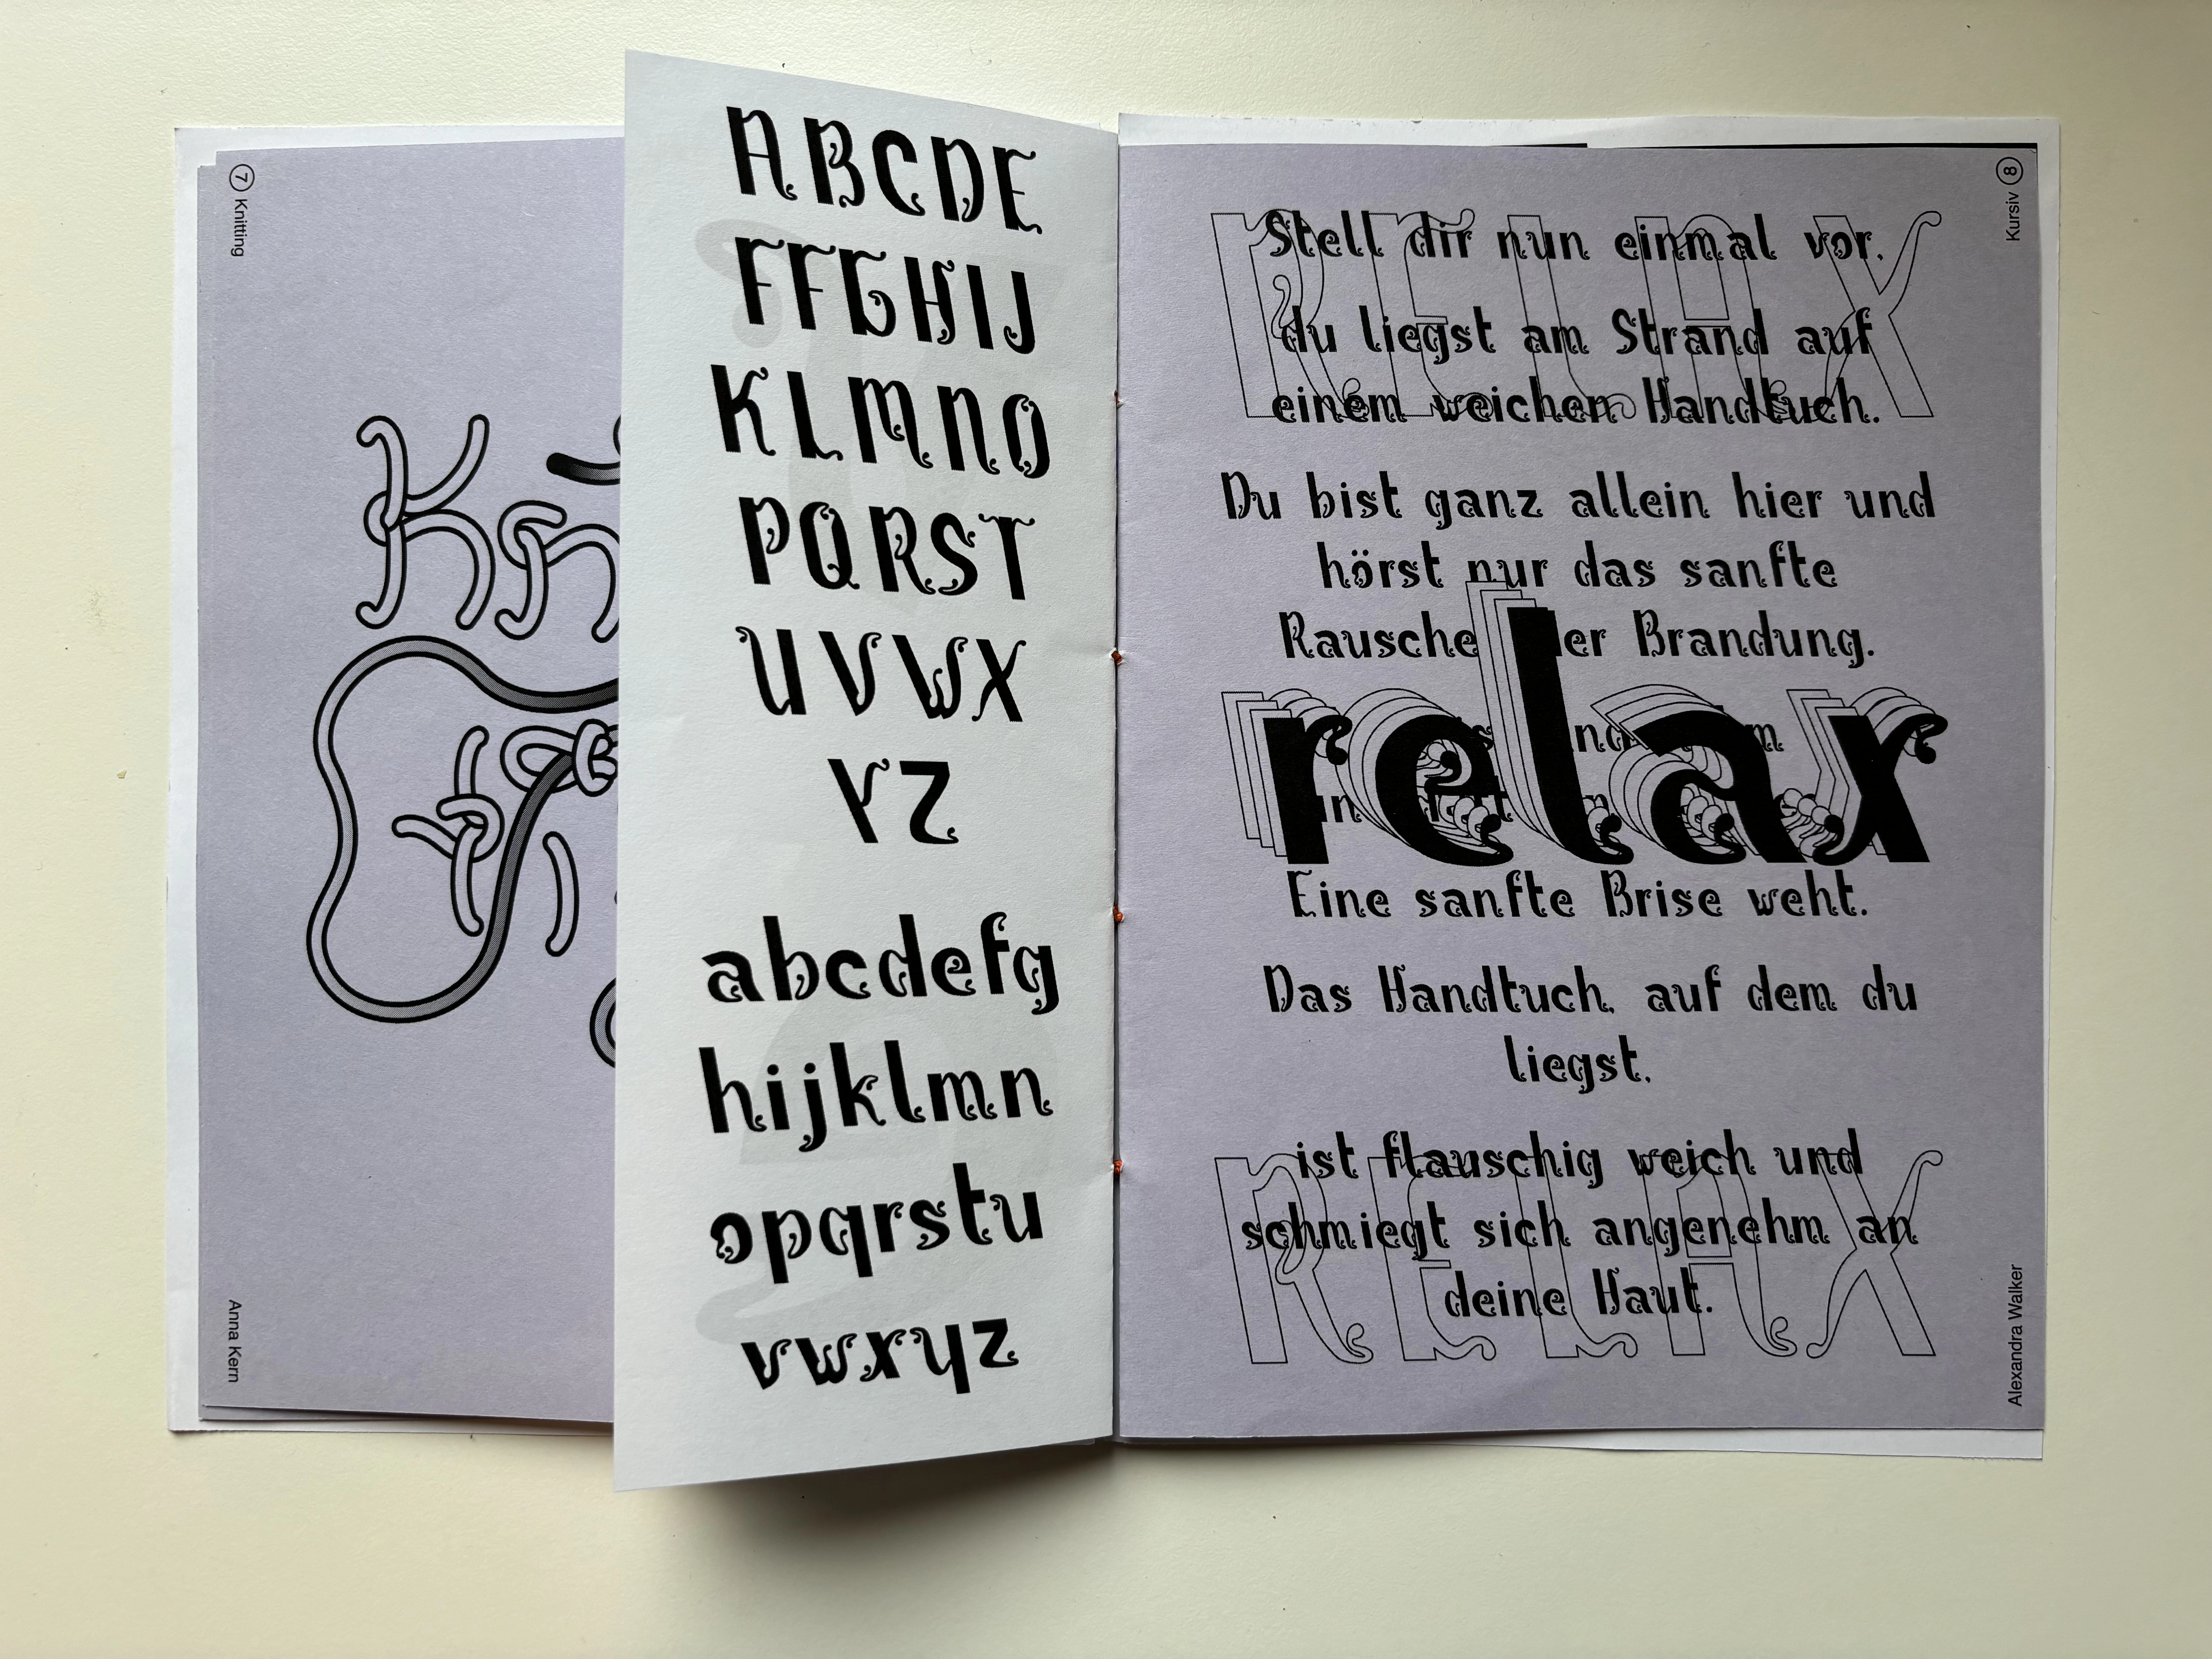 7 Knitting
Kn
Anna Kern
ABCDE
FFGHIJ
KLMNO
PQRST
UVWX
YZ
abcdefg
hijklmn
opqrstu
vwxyz
8 Kursiv
RELAX
Stell dir nun einmal vor,
du liegst am Strand auf
einem weichen Handtuch.
Du bist ganz allein hier und
hörst nur das sanfte
Rausche er Brandung.
relax
Eine sanfte Brise weht.
Das Handtuch, auf dem du
liegst,
RELAX
ist flauschig weich und
schmiegt sich angenehm an
deine Haut.
Alexandra Walker